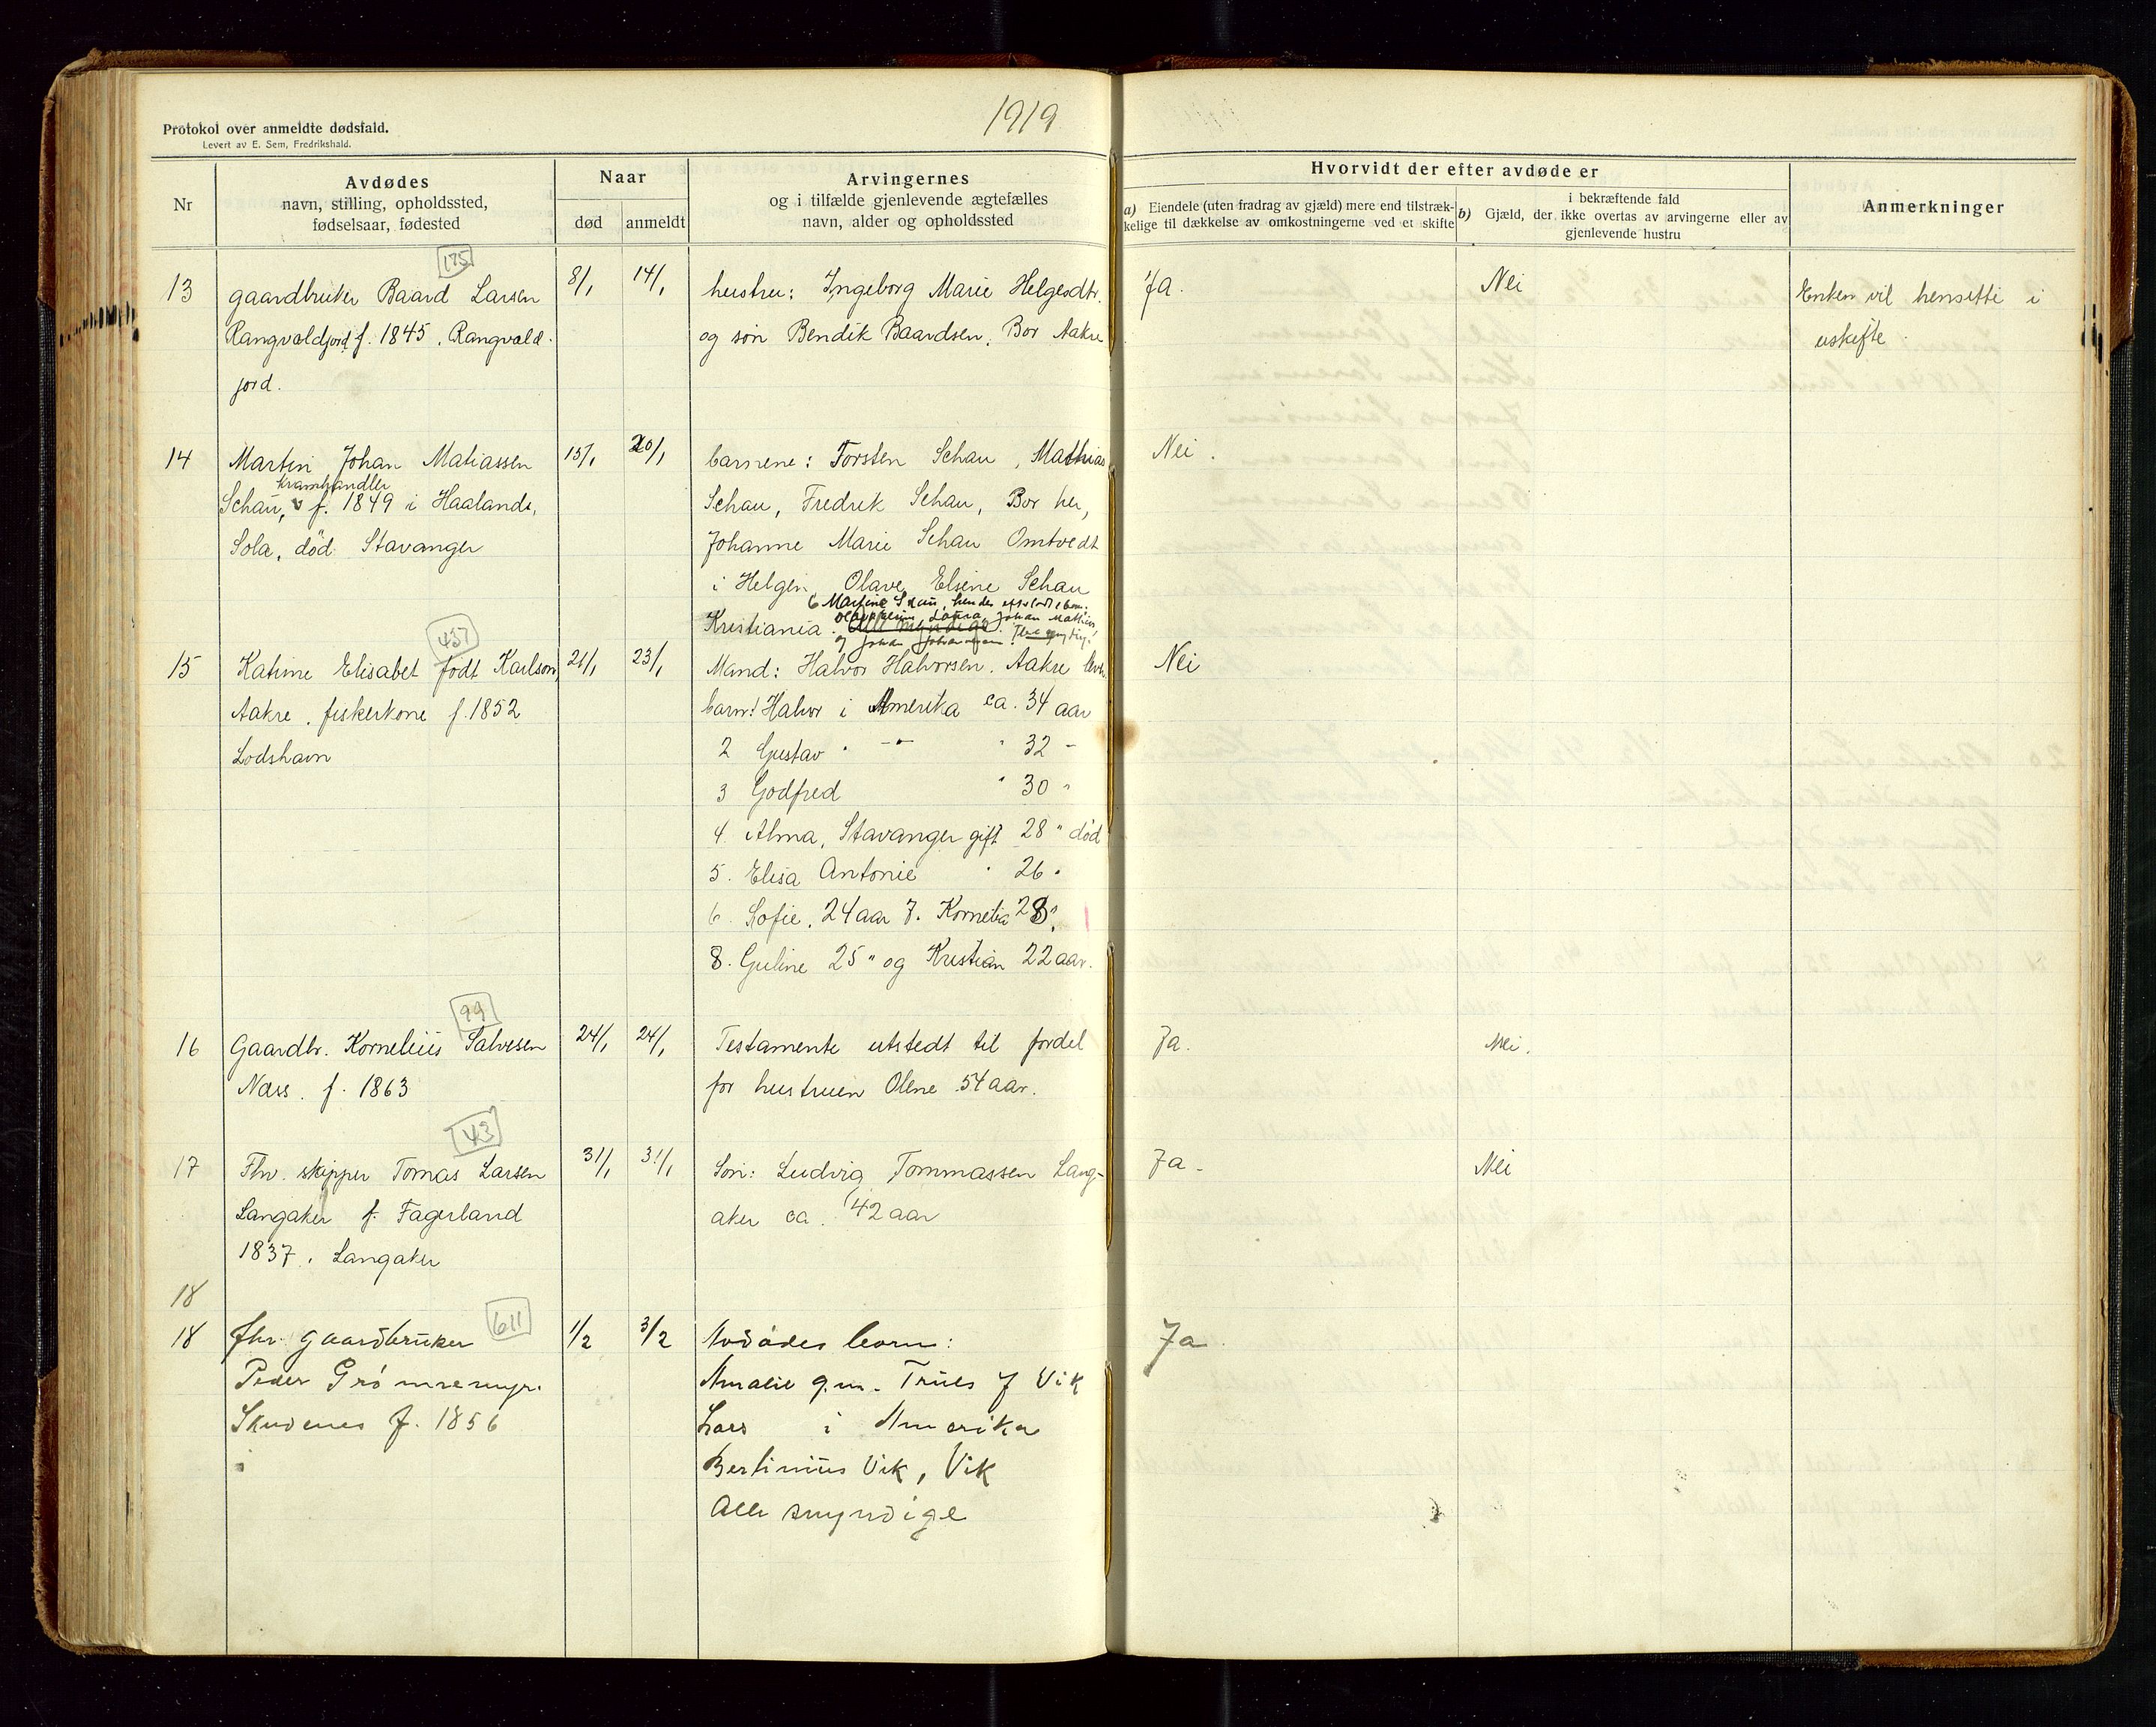 1919
Protokol over anmeldte dødsfald.
Levert av E. Sem, Fredrikshald.
Nr
Avdødes
navn, stilling, opholdssted,
fødselsaar, fødested
Naar
død
anmeldt
Arvingernes
og i tilfælde gjenlevende ægtefælles
navn, alder og opholdssted
Hvorvidt der efter avdøde er
a) Eiendele (uten fradrag av gjæld) mere end tilstræk-
kelige til dækkelse av omkostningerne ved et skifte
i bekræftende fald
b) Gjæld, der ikke overtas av arvingerne eller av
gjenlevende hustru
Anmerkninger
175
13 gaardbruker Baard Larsen 8/1 14/1 hustru: Ingeborg Marie Helgesdtr. Ja. Nei Enken vil hensitte i
Rangvaldjord f. 1845. Rangvald- og søn Bendik Baardsen. Bor Aakre uskifte.
jord.
14 Martin Johan Matiassen 15/1 20/1 barnene: Torsten Schau, Mathias Nei.
kramhandler
Schau, f. 1849 i Haaland, Schau, Fredrik Schau, Bor her,
Sola, död: Stavanger Johanne Marie Schau Omtvedt
i Helgen Olave Elsine Schau
6 Martine
Laura, Johan Mathias
Kristiania.
437
15 Katrine Elisabet født Karlson, 21/1 23/1 Mand: Halvor Halvorsen. Aakre Nei
Aakre. fiskerkone f. 1852 barn: Halvor i Amerika ca. 34 aar
Lodshavn 2 Gustav " - " - " 32 -
3 Godfred " 30 "
4. Alma, Stavanger gift 28 " død
5. Elisa Antonie " 26 "
6. Sofie. 24 aar 7. Kornelia 28 "
8. Guline 25 " og Kristian 22 aar.
99
16 Gaardbr. Kornelius Salvesen 24/1 24/1 Testamente utstedt til fordel Ja. Nei.
Næss. f. 1863 for hustruen Olene 54 aar.
43
17 Fhv. skipper Tomas Larsen 31/1 31/1 Søn: Ludvig Tommassen Lang- Ja. Nei
Langaker f. Fagerland aker ca. 42 aar
1837. Langaker
18
611
18 fhv. gaardbruker 1/2 3/2 Avdødes barn: Ja.
Peder Grønnemyr. Amalie g.m. Truls J Vik
Skudenes f. 1856 Lars i Amerika
Bertinius Vik, Vik
Alle myndige